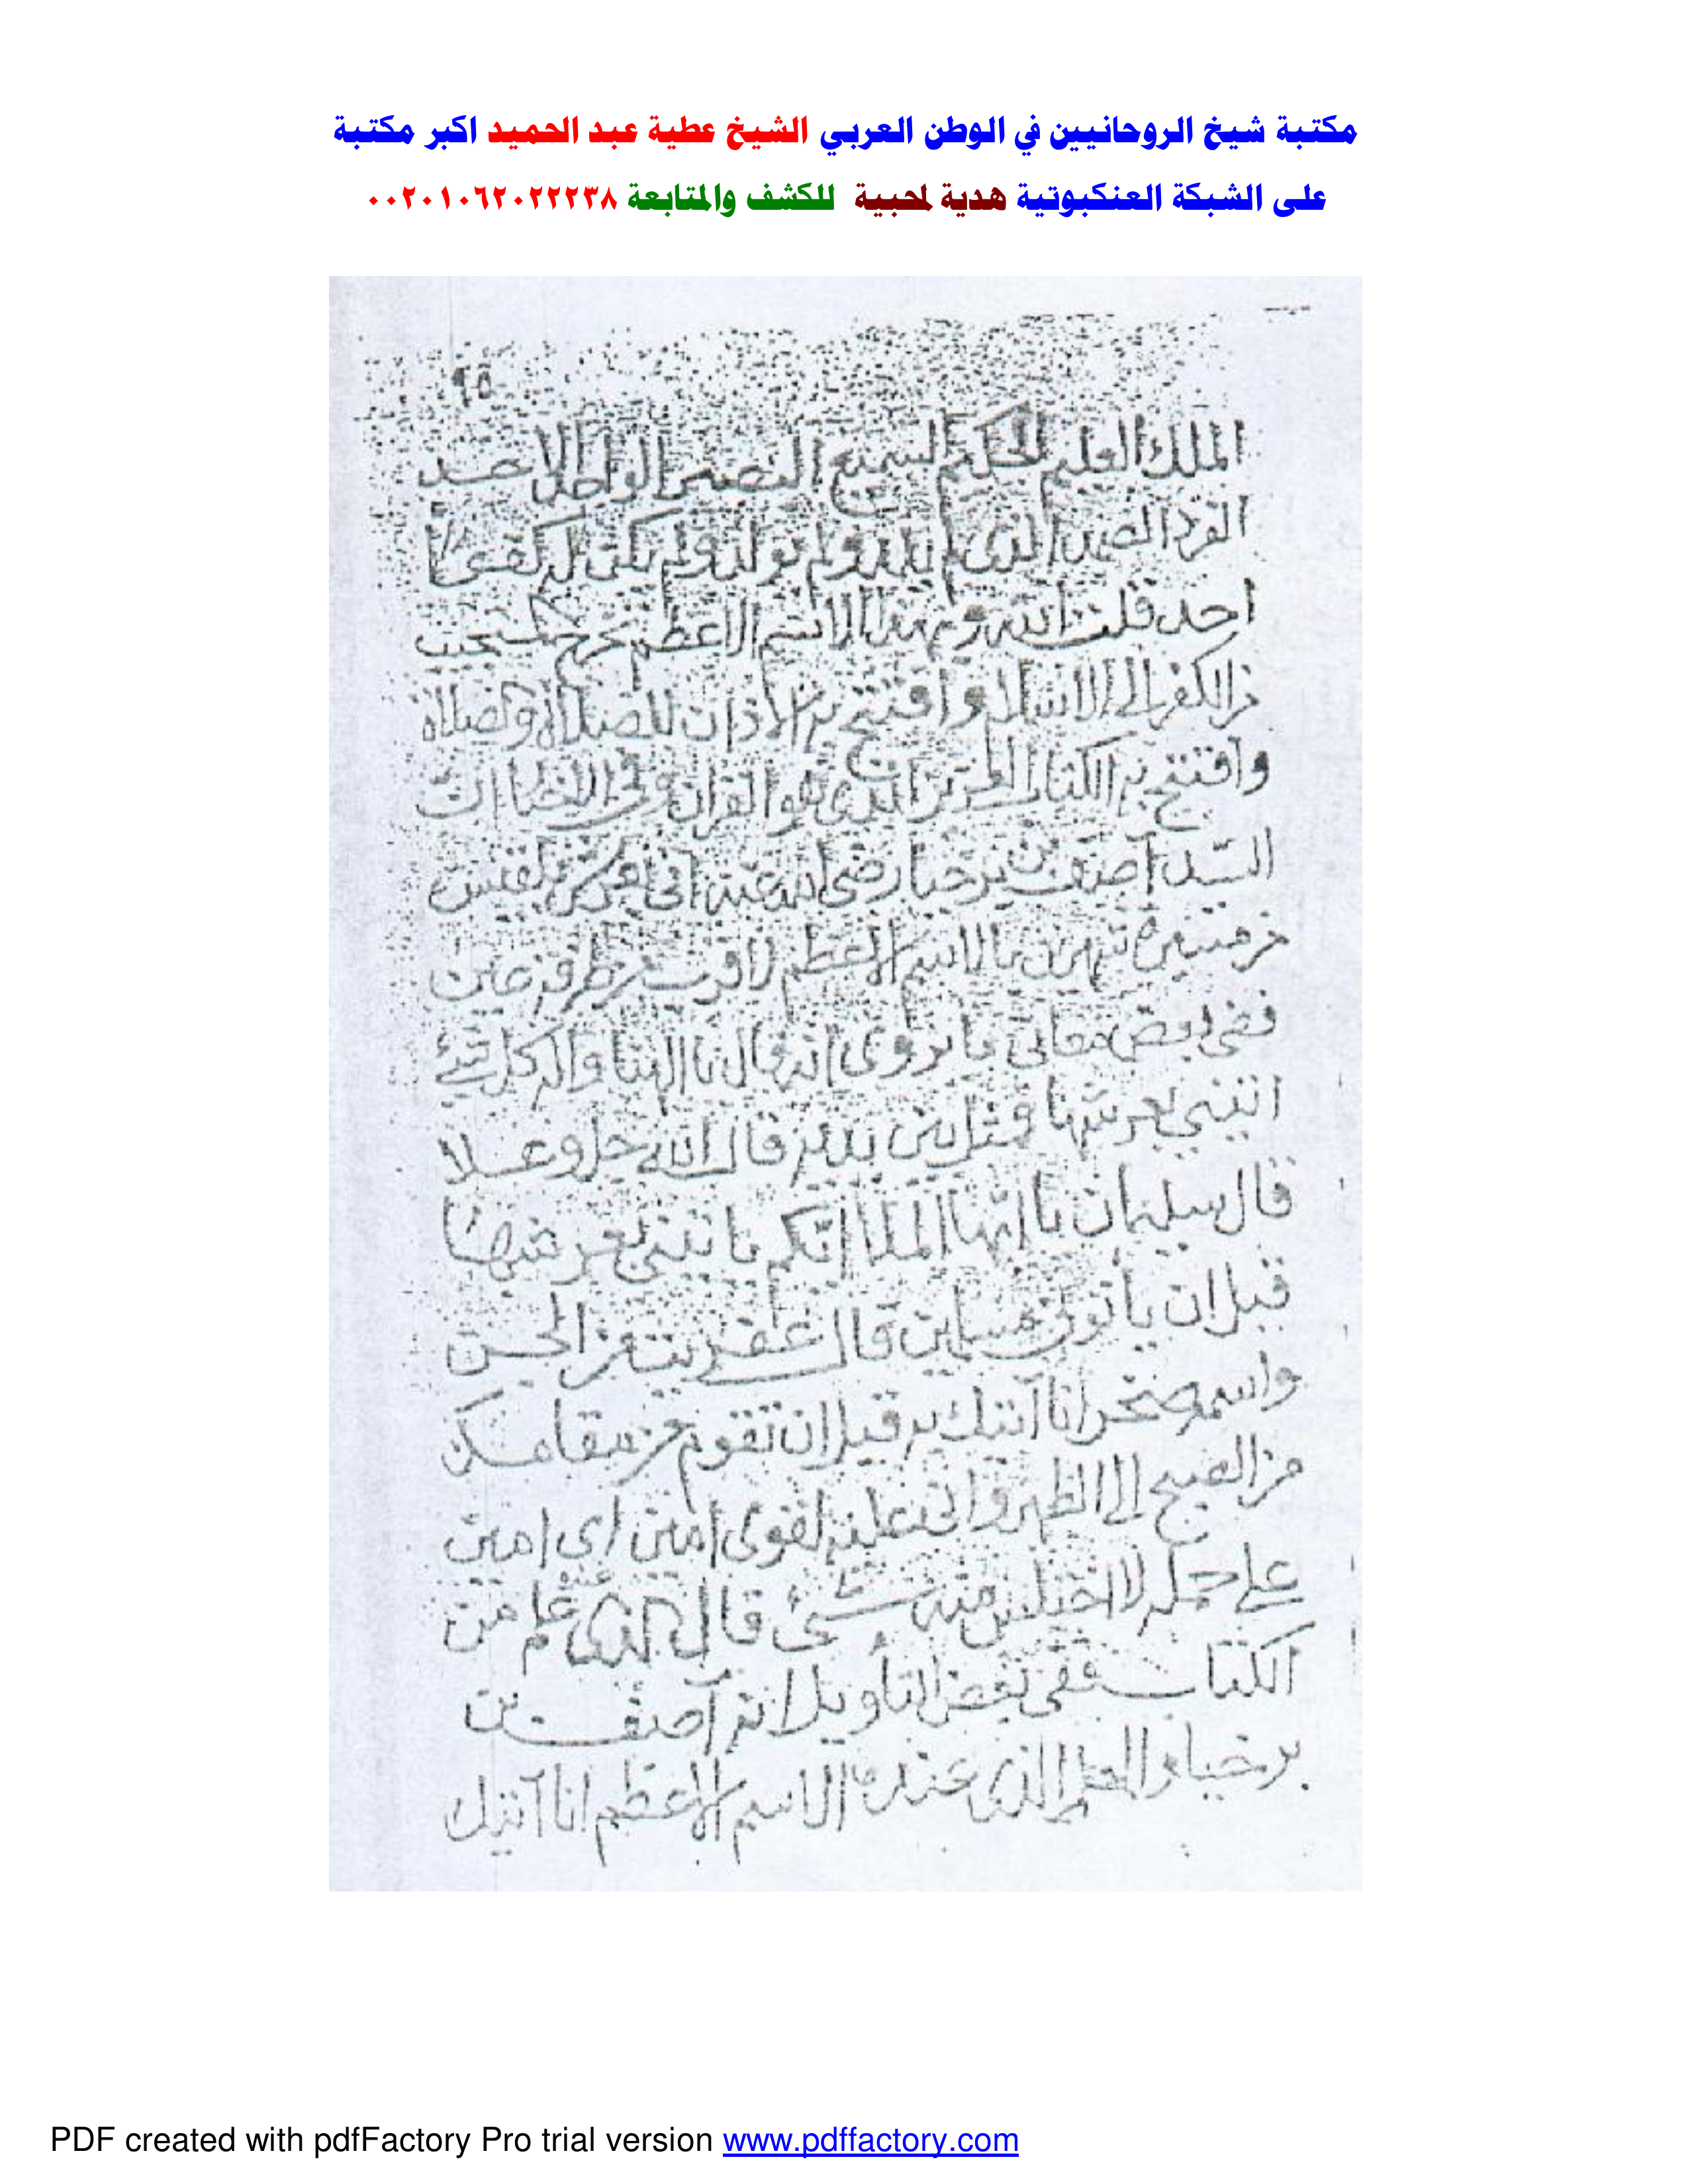 مكتبة شيخ الروحانيين في الوطن العربي الشيخ عطية عبد الحميد اكبر مكتبة
على الشبكة العنكبوتية هدية لمحبية للكشف والمتابعة ٠٠٢٠١٠٦٢٠٢٢٢٣٨
الملك العليم الحكيم السميع البصير الواحد الاحد
الفرد الصمد الذي لم يلد ولم يولد ولم يكن له كفوا
احد قلت انه وبهذا الاسم الاعظم
الكفر الى الاسلام وافتتح به الاذان للصلاة والصلاة
وافتتح به الكتاب العزيز الذي هو القران وفي الاخبار ان
السيد آصف بن برخيا رضي الله عنه اتى بعرش بلقيس
من مسيرة شهرين بالاسم الاعظم لاقرب من طرفة عين
ففي بعض معاني ما يروى انه قال يا الهنا واله كل شئ
ائتني بعرشها فمثل بين يديه قال الله جل وعلا
قال سليمان يا ايها الملا ايكم ياتيني بعرشها
قبل ان ياتوني مسلمين قال عفريت من الجن
واسمه صخر انا آتيك به قبل ان تقوم من مقامك
من الصبح الى الظهر واني عليه لقوي امين اي امين
على حمله لا اختلس منه شئ قال الذي عنده علم من
الكتاب ففي بعض التاويل انه آصف بن
برخيا والعلم الذي عنده الاسم الاعظم انا آتيك
PDF created with pdfFactory Pro trial version www.pdffactory.com